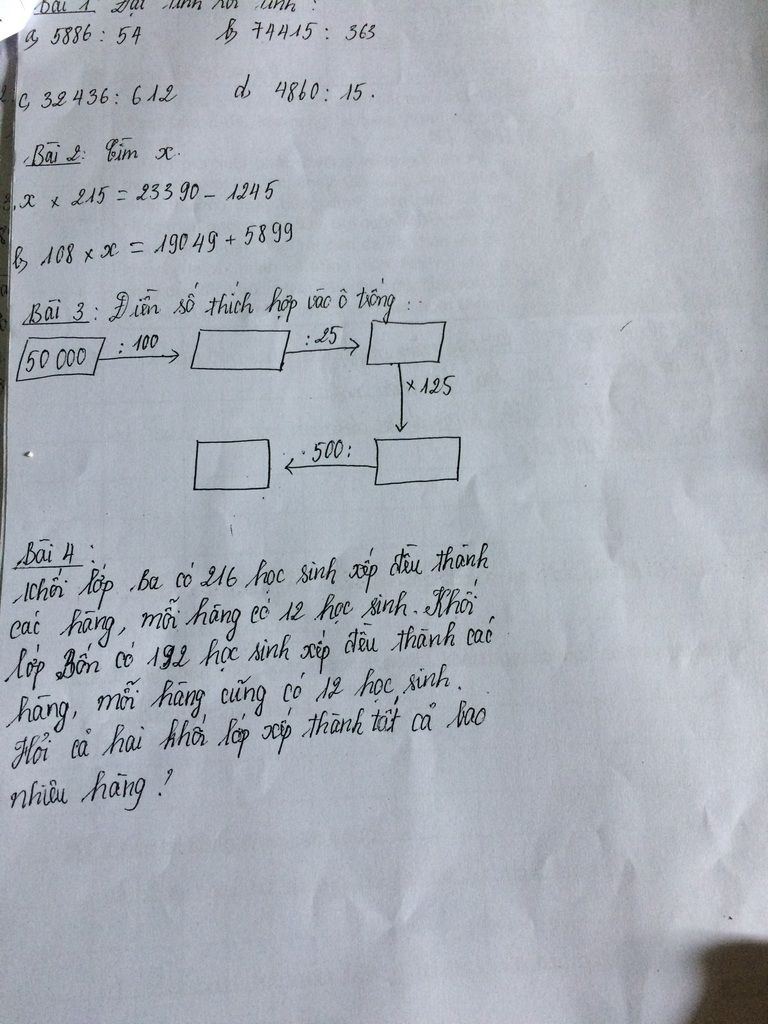 Bài 1 Đặt tính rồi tính :
a, 5886 : 54 b, 74415 : 363
c, 32436 : 612 d, 4860 : 15.
Bài 2: Tìm x.
x × 215 = 23390 - 1245
b, 108 × x = 19049 + 5899
Bài 3 : Điền số thích hợp vào ô trống :
50 000 : 100 : 25
× 125
500 :
Bài 4 :
Khối lớp Ba có 216 học sinh xếp đều thành
các hàng, mỗi hàng có 12 học sinh. Khối
lớp Bốn có 192 học sinh xếp đều thành các
hàng, mỗi hàng cũng có 12 học sinh.
Hỏi cả hai khối lớp xếp thành tất cả bao
nhiêu hàng ?